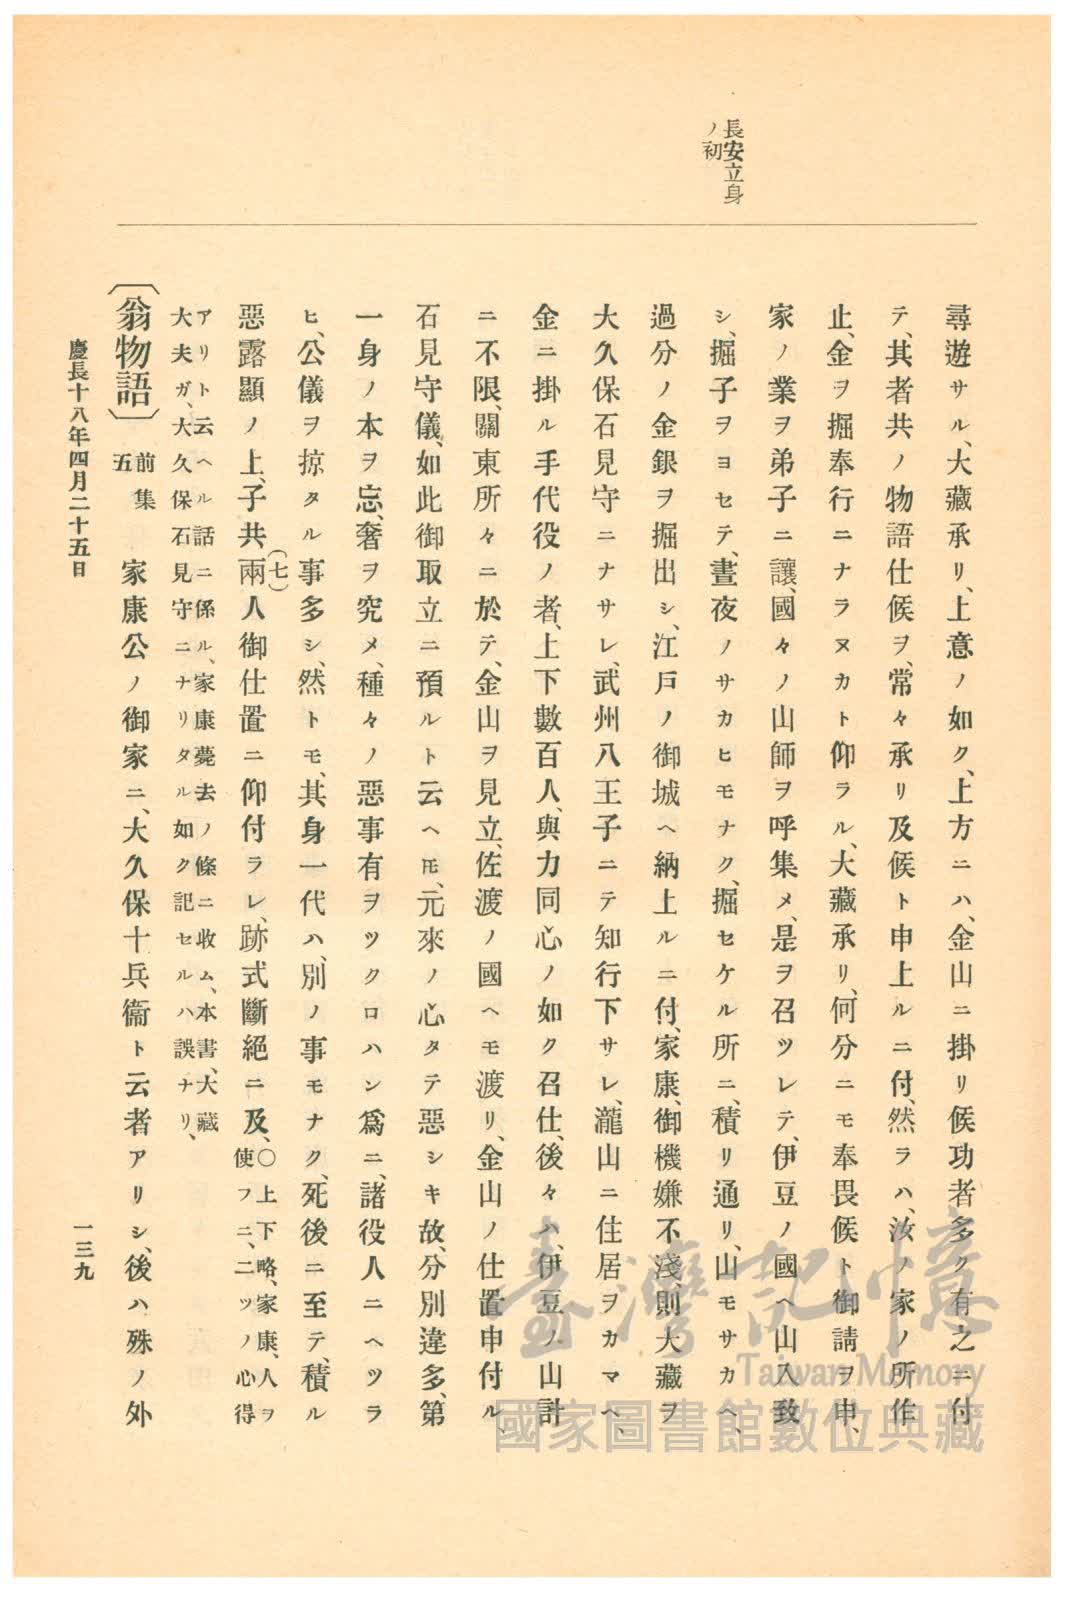 長安立身
ノ初
尋遊サル、大藏承リ、上意ノ如ク、上方ニハ、金山ニ掛リ候功者多ク有之ニ付
テ、其者共ノ物語仕候ヲ、常々承リ及候ト申上ルニ付、然ラハ、汝ノ家ノ所作
止、金ヲ掘奉行ニナラヌカト仰ラル、大藏承リ、何分ニモ奉畏候ト御請ヲ申、
家ノ業ヲ弟子ニ讓、國々ノ山師ヲ呼集メ、是ヲ召ツレテ、伊豆ノ國ヘ山入致
シ、掘子ヲヨセテ、晝夜ノサカヒモナク、掘セケル所ニ、積リ通リ、山モサカヘ、
過分ノ金銀ヲ掘出シ、江戸ノ御城ヘ納上ルニ付、家康、御機嫌不淺、則大藏ヲ
大久保石見守ニナサレ、武州八王子ニテ知行下サレ、瀧山ニ住居ヲカマヘ、
金ニ掛ル手代役ノ者、上下數百人、與力同心ノ如ク召仕、後々ハ、伊豆ノ山計
ニ不限、關東所々ニ於テ、金山ヲ見立、佐渡ノ國ヘモ渡リ、金山ノ仕置申付ル、
石見守儀、如此御取立ニ預ルト云ヘ𪜈、元來ノ心タテ惡シキ故、分別違多、第
一身ノ本ヲ忘、奢ヲ究メ、種々ノ惡事有ヲツクロハン爲ニ、諸役人ニヘツラ
ヒ、公儀ヲ掠タル事多シ、然トモ、其身一代ハ、別ノ事モナク、死後ニ至テ、積ル
惡露顯ノ上、子共兩(七)人御仕置ニ仰付ラレ、跡式斷絕ニ及、〇上下略、家康、人ヲ
使フニ、二ツノ心得
アリト云ヘル話ニ係ル、家康薨去ノ條ニ收ム、本書、大藏
大夫ガ、大久保石見守ニナリタル如ク記セルハ誤ナリ、
〔翁物語〕 前集
五 家康公ノ御家ニ、大久保十兵衞ト云者アリシ、後ハ殊ノ外
慶長十八年四月二十五日
一三九
臺灣記憶
Taiwan Memory
國家圖書館數位典藏